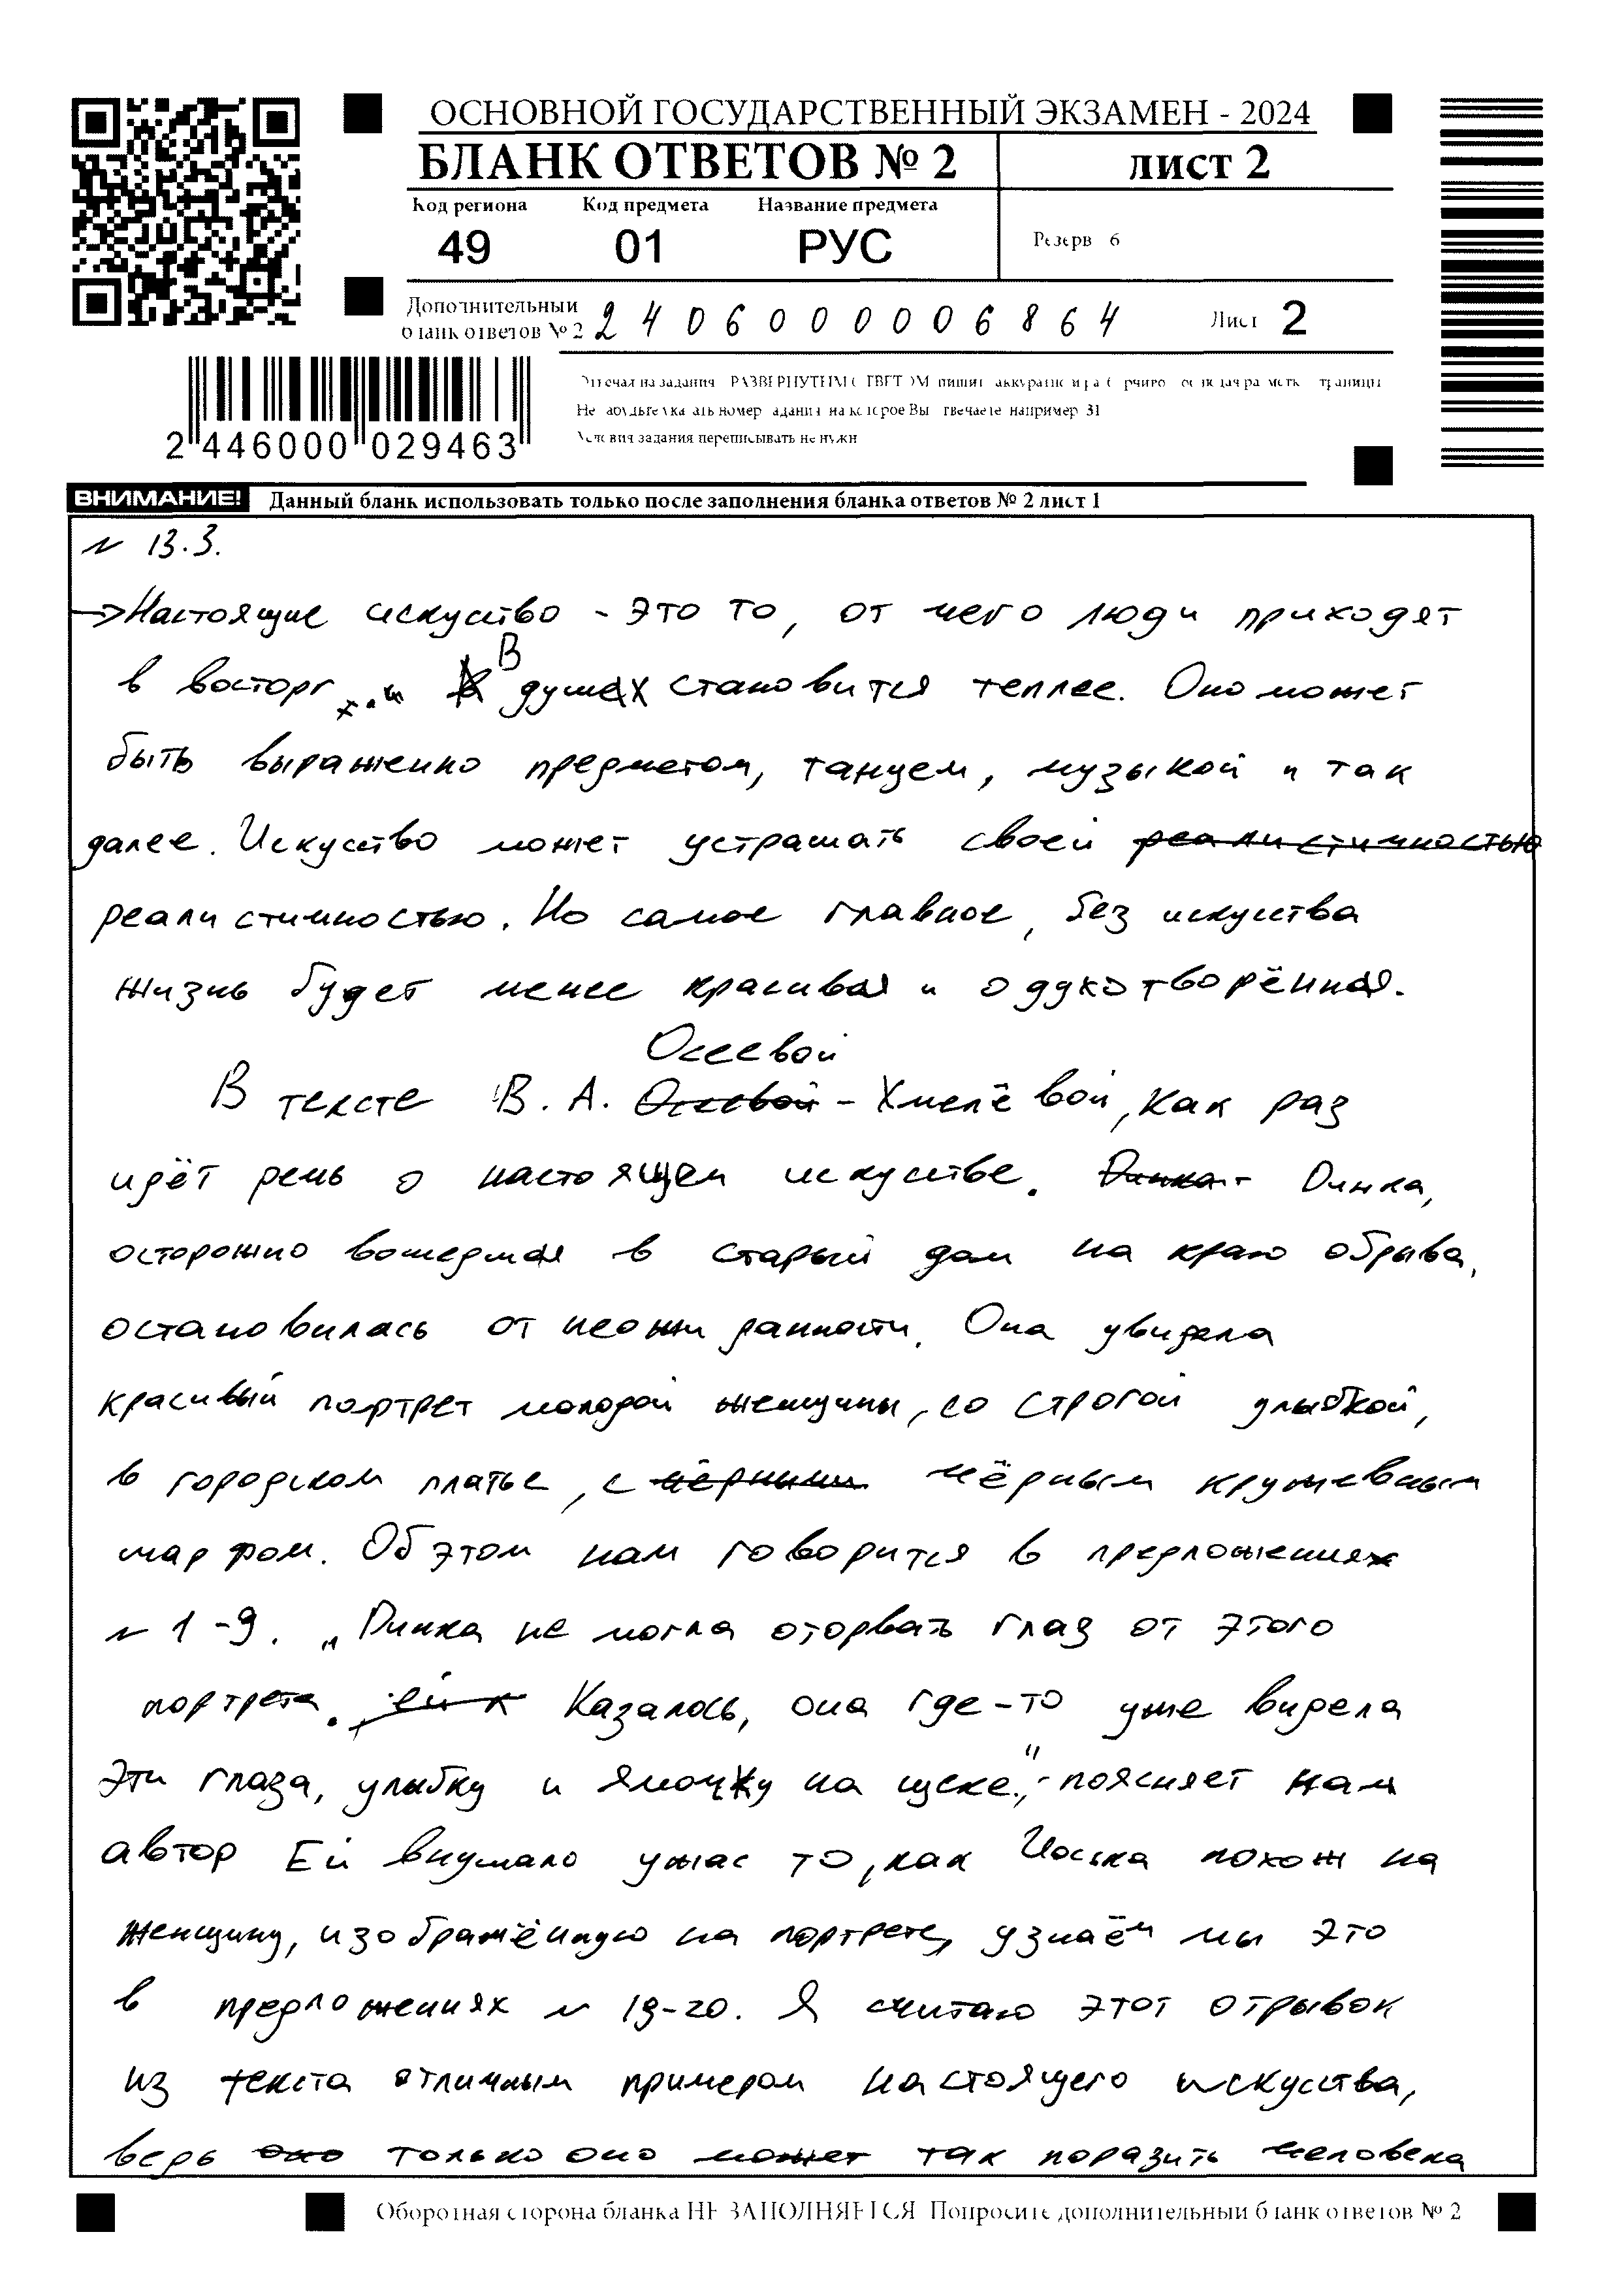 ОСНОВНОЙ ГОСУДАРСТВЕННЫЙ ЭКЗАМЕН - 2024
БЛАНК ОТВЕТОВ № 2
ЛИСТ 2
Код региона Код предмета Название предмета
49 01 РУС
Резерв 6
Дополнительный
бланк ответов № 2
2406000006864
Лист 2
Отвечая на задания с РАЗВЕРНУТЫМ ОТВЕТОМ пишите аккуратно и разборчиво
Не забудьте указать номер задания на которое Вы отвечаете например 31
Условия задания переписывать не нужн
2 446000 029463
ВНИМАНИЕ! Данный бланк использовать только после заполнения бланка ответов № 2 лист 1
N 13.3.
Настоящие искуство - это то, от чего люди приходят
в восторг и в душах становится теплее. Оно может
быть выраженно предметом, танцем, музыкой и так
далее. Искуство может устрашать своей реалистичностью
реалистичностью. Но самое главное, без искуства
жизнь будет менее красивая и одухотворённая.
Осеевой
В тексте В. А. Осеевой - Хмелёвой, как раз
идёт речь о настоящем искустве. Динка - Динка,
осторожно вошедшая в старый дом на краю обрыва,
остановилась от неожиданности. Она увидела
красивый портрет молодой женщины, со строгой улыбкой,
в городском платье, с чёрным чёрным кружевным
шарфом. Об этом нам говорится в предложениях
N 1-9. „Динка не могла оторвать глаз от этого
портрета. Казалось, она где-то уже видела
эти глаза, улыбку и ямочку на щеке.", - поясняет нам
автор Ей внушало ужас то, как Иоська похож на
женщину, изображённую на портрете, узнаём мы это
в предложениях N 19-20. Я считаю этот отрывок
из текста отличным примером настоящего искуства,
ведь оно только оно может так поразить человека
Оборотная сторона бланка НЕ ЗАПОЛНЯЕТСЯ Попросите дополнительный бланк ответов № 2